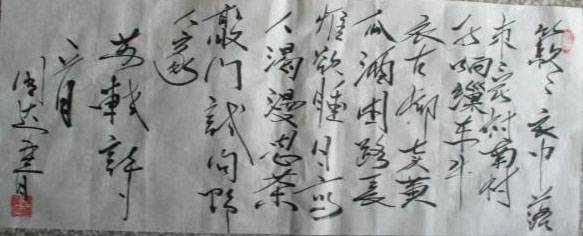 簌々衣巾落
枣花村南村
北响缫车牛
衣古柳卖黄
瓜酒困路長
惟欲睡日高
人渴漫思茶
敲门试问野
人家
苏軾詞
月
周达